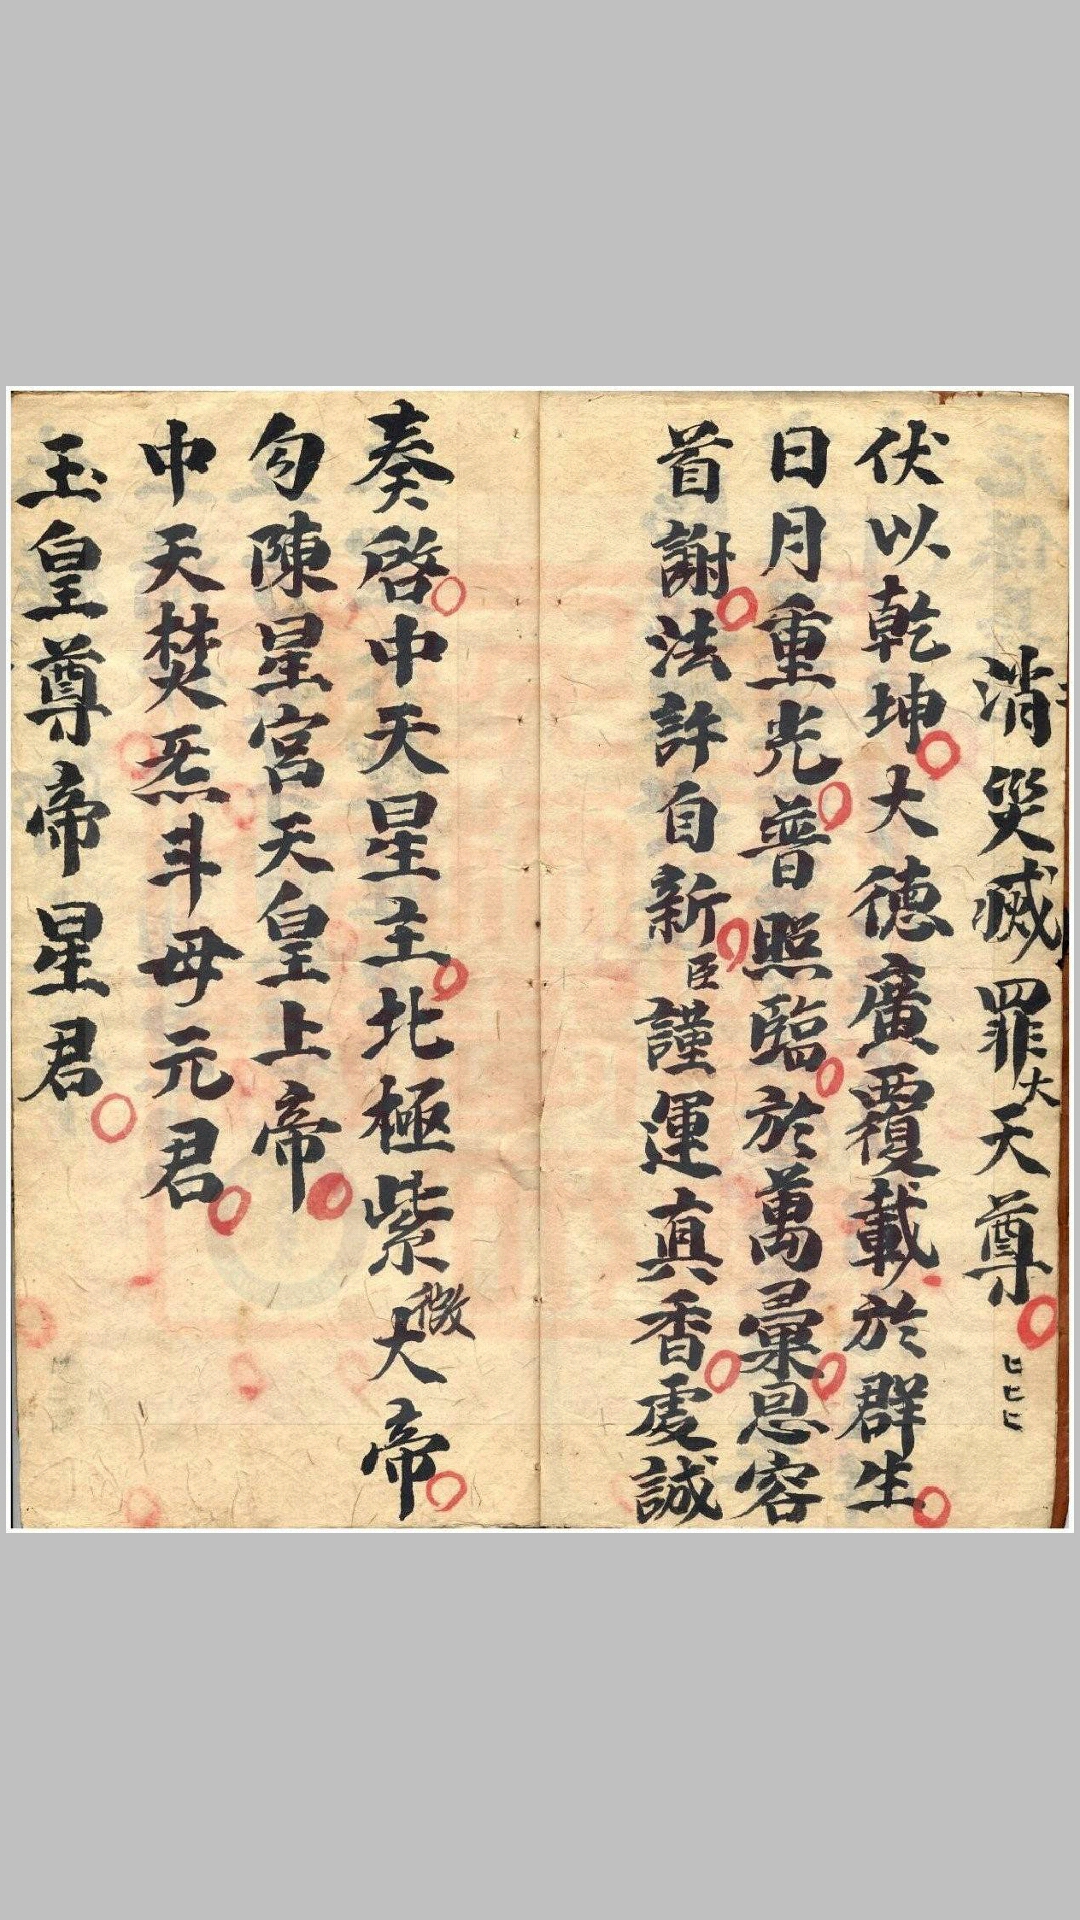 消災滅罪大天尊
伏以乾坤大德廣覆載於群生
日月重光普照臨於萬彙恩容
首謝法許自新臣謹運真香虔誠
奏啓中天星主北極紫微大帝
勾陳星宮天皇上帝
中天焚炁斗母元君
玉皇尊帝星君